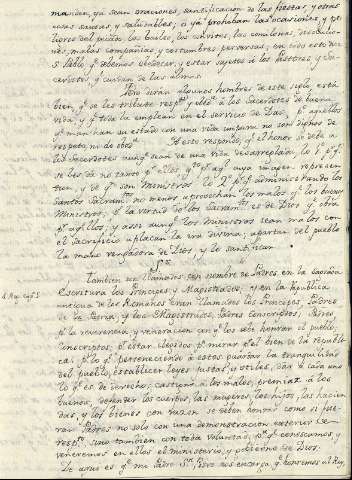 mandan, ya sean oraciones, santificacion de las fiestas, y otras
cosas santas, y saludables; o ya prohiban las ocasiones, y pe-
ligros del pecado los bailes, los convites, las comilonas,
nes, malas compañias, y costumbres perversas; en todo esto dice
S. Pablo qe debemos obedecer, y estar sujetos à los Pastores, y Sa-
cerdotes qe cuidan de las almas.
Pero diran algunos hombres de este siglo, está
bien, qe se les tribute respto y à los Sacerdotes de buena
vida, y qe toda la emplean en el servicio de Dios, po aquellos
qe manchan su estado con una vida impura no son dignos de
respeto, ni de A esto respondo, qe el honor se debe a
los Sacerdotes aunqe sean de una vida desarreglada; lo 1º pr qe
se les dà no tanto pr ellos, qe pr aql cuya imagen represen-
tan, y de qn son Ministros. lo 2º pr qe administrando los
Santos no menos aprovechan los malos qe los buenos
Ministros; pr qe la virtud de los es de Dios y obra
pr aqllos; y assi aunqe los Ministros sean malos con
el Sacrificio aplacan la ira divina, apartan del pueblo
la mala vengadora de Dios, y le santifican.
Tambien son llamados con nombre de Padres en la sagrada
4 Reg. cap. 5
Escritura los Principes, y Magistrados, y en la Republica
antigua de los Romanos eran llamados los Principes, Padres
de la Patria, y los Magistrados, Padres conscriptos; Padres
pr la reverencia, y veneracion con qe los debe honrar el pueblo,
conscriptos, pr estar elegidos pa mirar pr el bien de la republi-
ca; pr lo qe perteneciendo à estos guardar la tranquilidad
del pueblo, establecer leyes justas, y utiles, dar à cada uno
lo qe es de derecho, castigar à los malos, premiar à los
buenos, defender los cuerpos, las mugeres, los hijos, las hacien-
das, y los bienes con razon se deben honrar como si fue-
ran Padres no solo con una demostracion exterior de
respto, sino tambien con toda voluntad, pr qe conozcamos, y
veneremos en ellos el ministerio, y gobierno de Dios.
De aqui es qe mi Padre Sn Pedro nos encarga, qe honremos al Rey,